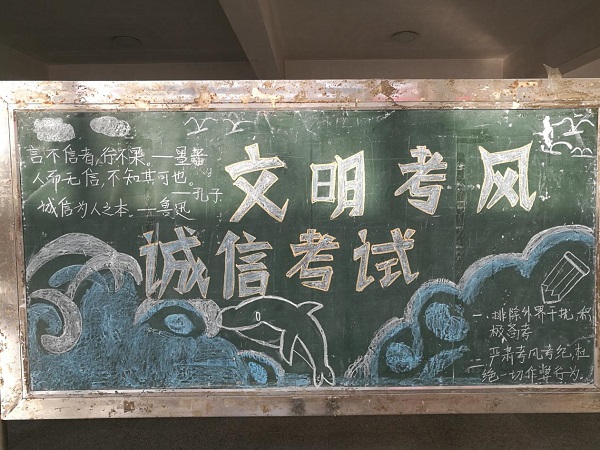 言不信者,行不果。——墨翟
人而无信,不知其可也。
——孔子
诚信为人之本。——鲁迅
文明考风
诚信考试
一、排除外界干扰,积
极备考
二、严肃考风考纪,杜
绝一切作弊行为。